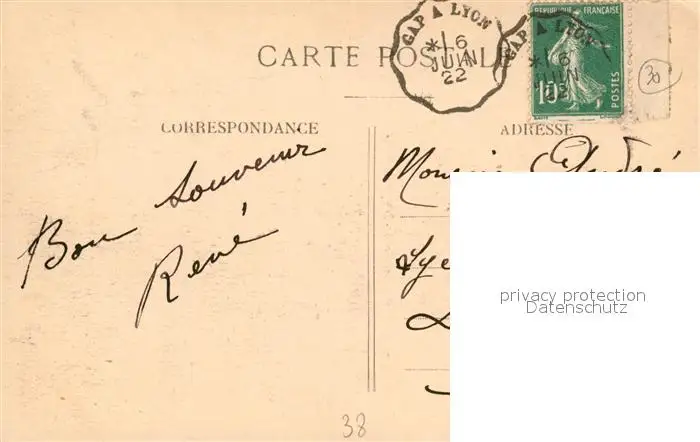 GAP A LYON
*16
JUIN
22
GAP A LYON
*16
JUIN
22
REPUBLIQUE FRANÇAISE
10
POSTES
30
CARTE POSTALE
CORRESPONDANCE
ADRESSE
Bon souvenir
René
André
privacy protection
Datenschutz
38